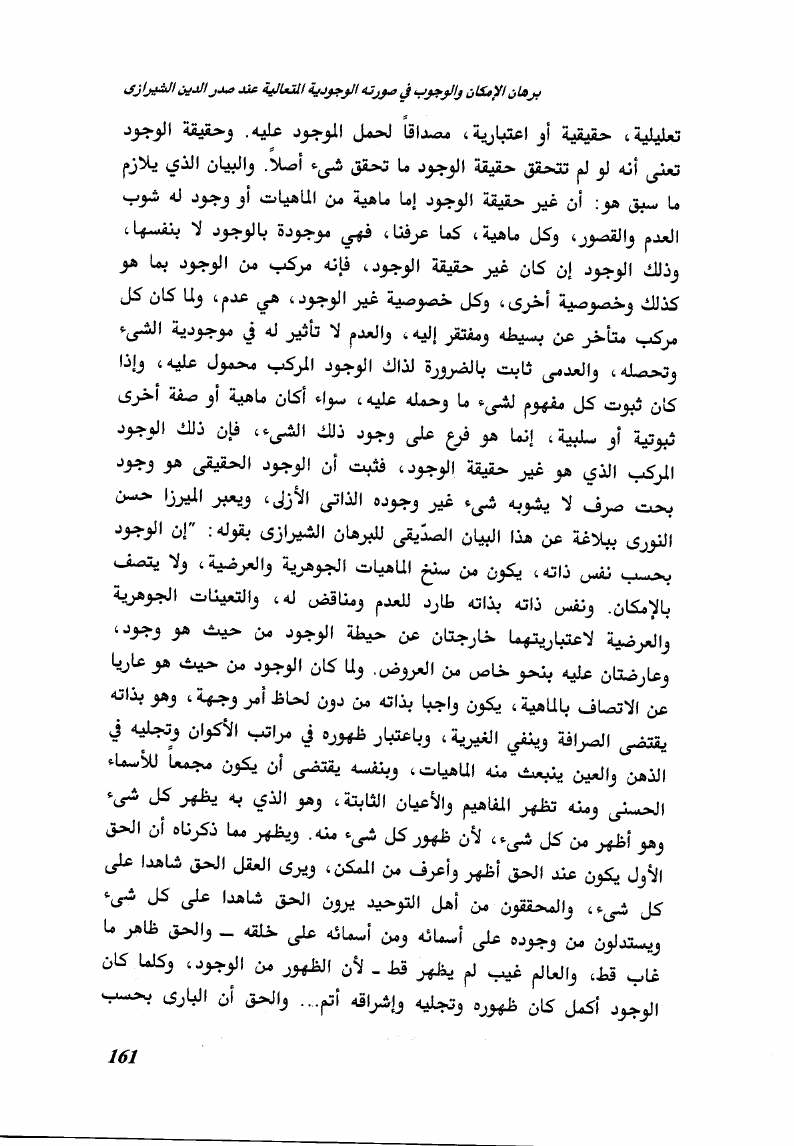 برهان الإمكان والوجوب في صورته الوجودية المتعالية عند صدر الدين الشيرازى
تعليلية، حقيقية أو اعتبارية، مصداقاً لحمل الموجود عليه. وحقيقة الوجود
تعنى أنه لو لم تتحقق حقيقة الوجود لما تحقق شىء أصلاً. والبيان الذي يلازم
ما سبق هو: أن غير حقيقة الوجود إما ماهية من الماهيات أو وجود له شوب
العدم والقصور، وكل ماهية، كما عرفنا، فهي موجودة بالوجود لا بنفسها،
وذلك الوجود إن كان غير حقيقة الوجود، فإنه مركب من الوجود بما هو
كذلك وخصوصية أخرى، وكل خصوصية غير الوجود، هي عدم، ولما كان كل
مركب متأخر عن بسيطه ومفتقر إليه، والعدم لا تأثير له في موجودية الشىء
وتحصله، والعدمى ثابت بالضرورة لذاك الوجود المركب محمول عليه، وإذا
كان ثبوت كل مفهوم لشىء ما وحمله عليه، سواء أكان ماهية أو صفة أخرى
ثبوتية أو سلبية، إنما هو فرع على وجود ذلك الشىء، فإن ذلك الوجود
المركب الذي هو غير حقيقة الوجود، فثبت أن الوجود الحقيقى هو وجود
بحت صرف لا يشوبه شىء غير وجوده الذاتى الأزلى، ويعبر الميرزا حسن
النورى ببلاغة عن هذا البيان الصدّيقى للبرهان الشيرازى بقوله: "إن الوجود
بحسب نفس ذاته، يكون من سنخ الماهيات الجوهرية والعرضية، ولا يتصف
بالإمكان. ونفس ذاته بذاته طارد للعدم ومناقض له، والتعينات الجوهرية
والعرضية لاعتباريتهما خارجتان عن حيطة الوجود من حيث هو وجود،
وعارضتان عليه بنحو خاص من العروض. ولما كان الوجود من حيث هو عاريا
عن الاتصاف بالماهية، يكون واجبا بذاته من دون لحاظ أمر وجهة، وهو بذاته
يقتضى الصرافة وينفي الغيرية، وباعتبار ظهوره في مراتب الأكوان وتجليه في
الذهن والعين ينبعث منه الماهيات، وبنفسه يقتضى أن يكون مجمعاً للأسماء
الحسنى ومنه تظهر المفاهيم والأعيان الثابتة، وهو الذي به يظهر كل شىء
وهو أظهر من كل شىء، لأن ظهور كل شىء منه. ويظهر مما ذكرناه أن الحق
الأول يكون عند الحق أظهر وأعرف من الممكن، ويرى العقل الحق شاهدا على
كل شىء، والمحققون من أهل التوحيد يرون الحق شاهدا على كل شىء
ويستدلون من وجوده على أسمائه ومن أسمائه على خلقه – والحق ظاهر ما
غاب قط، والعالم غيب لم يظهر قط - لأن الظهور من الوجود، وكلما كان
الوجود أكمل كان ظهوره وتجليه وإشراقه أتم... والحق أن البارى بحسب
161